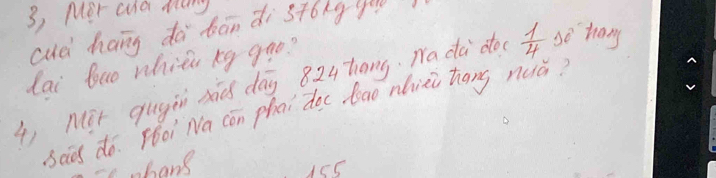 3, Một cửa hàng
cửa hàng đã bán đi 376kg gạo
lại bao nhiêu kg gạo?
4, Một quyển sách dày 824 trang. Na đã đọc 1/4 số trang
sách đó. Hỏi Na còn phải đọc bao nhiêu trang nữa?
155